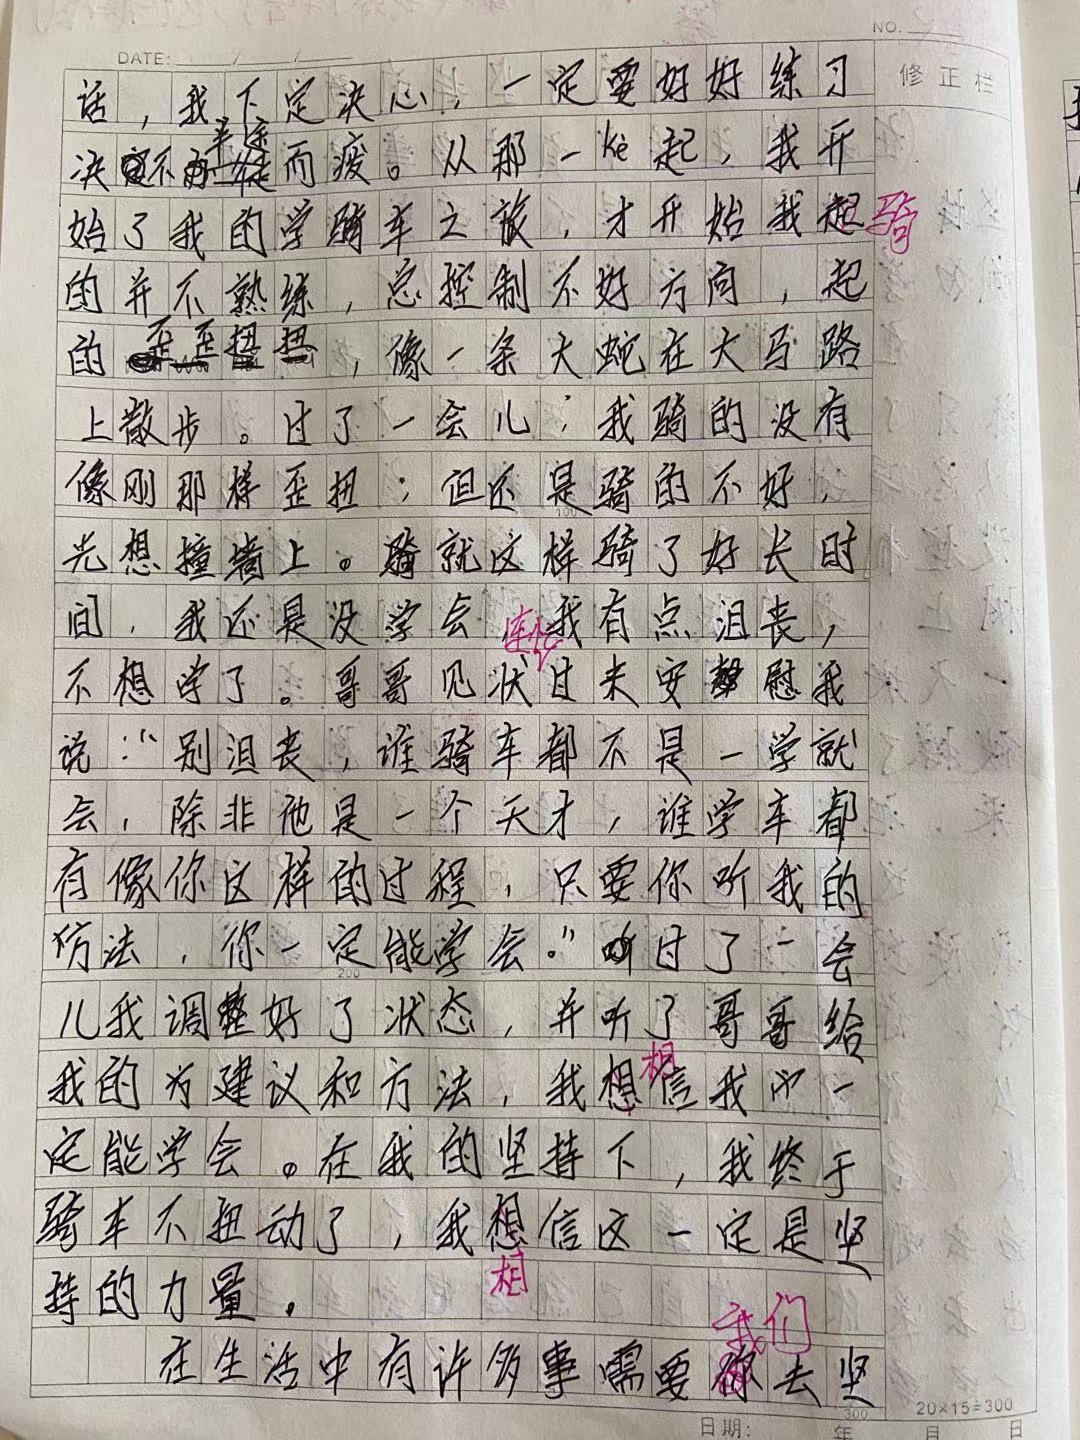 NO.
DATE: / /
修正栏
话，我下定决心，一定要好好练习
决不再半途而疲。从那一kè起，我开
始了我的学骑车之旅，才开始我起骑
的并不熟练，总控制不好方向，起
的歪歪扭扭，像一条大蛇在大马路
上散步。过了一会儿，我骑的没有
像刚那样歪扭，但还是骑的不好，
光想撞墙上。骑就这样骑了好长时
间，我还是没学会 我有点沮丧，
不想学了。哥哥见状过来安慰我
说：“别沮丧，谁骑车都不是一学就
会，除非他是一个天才，谁学车都
有像你这样的过程，只要你听我的
方法，你一定能学会。”过了一会
儿我调整好了状态，并听了哥哥给
相
我的为建议和方法，我想信我一
定能学会。在我的坚持下，我终于
骑车不扭动了，我想信这一定是坚
相
持的力量。
我们
在生活中有许多事需要你去坚
100
200
300
20×15=300
日期: 年 月 日